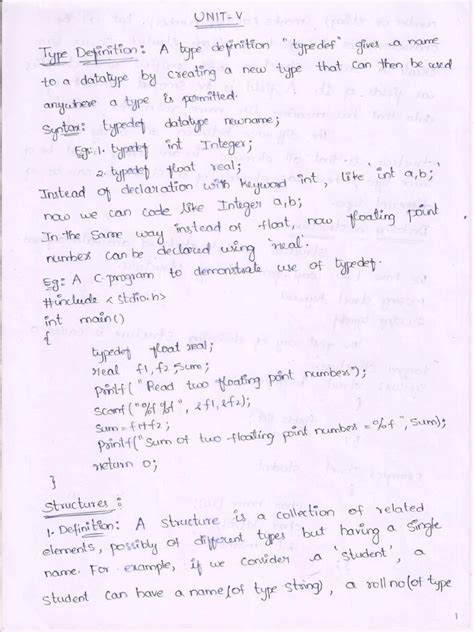 UNIT-V
Type Definition: A type definition "typedef" gives a name
to a datatype by creating a new type that can then be used
anywhere a type is permitted.
Syntax: typedef datatype newname;
Eg: 1. typedef int Integer;
2. typedef float real;
Instead of declaration with keyword int, like 'int a,b;'
now we can code like Integer a,b;
In the same way instead of float, now floating point
number can be declared using 'real'.
Eg: A C-program to demonstrate use of typedef.
#include <stdio.h>
int main()
{
typedef float real;
real f1, f2, sum;
printf("Read two floating point numbers");
scanf("%f %f", &f1, &f2);
sum = f1+f2;
printf("Sum of two floating point number = %f", sum);
return 0;
}
Structures:
1. Definition: A structure is a collection of related
elements, possibly of different types but having a single
name. For example, if we consider a 'student', a
student can have a name (of type string), a roll no (of type
1